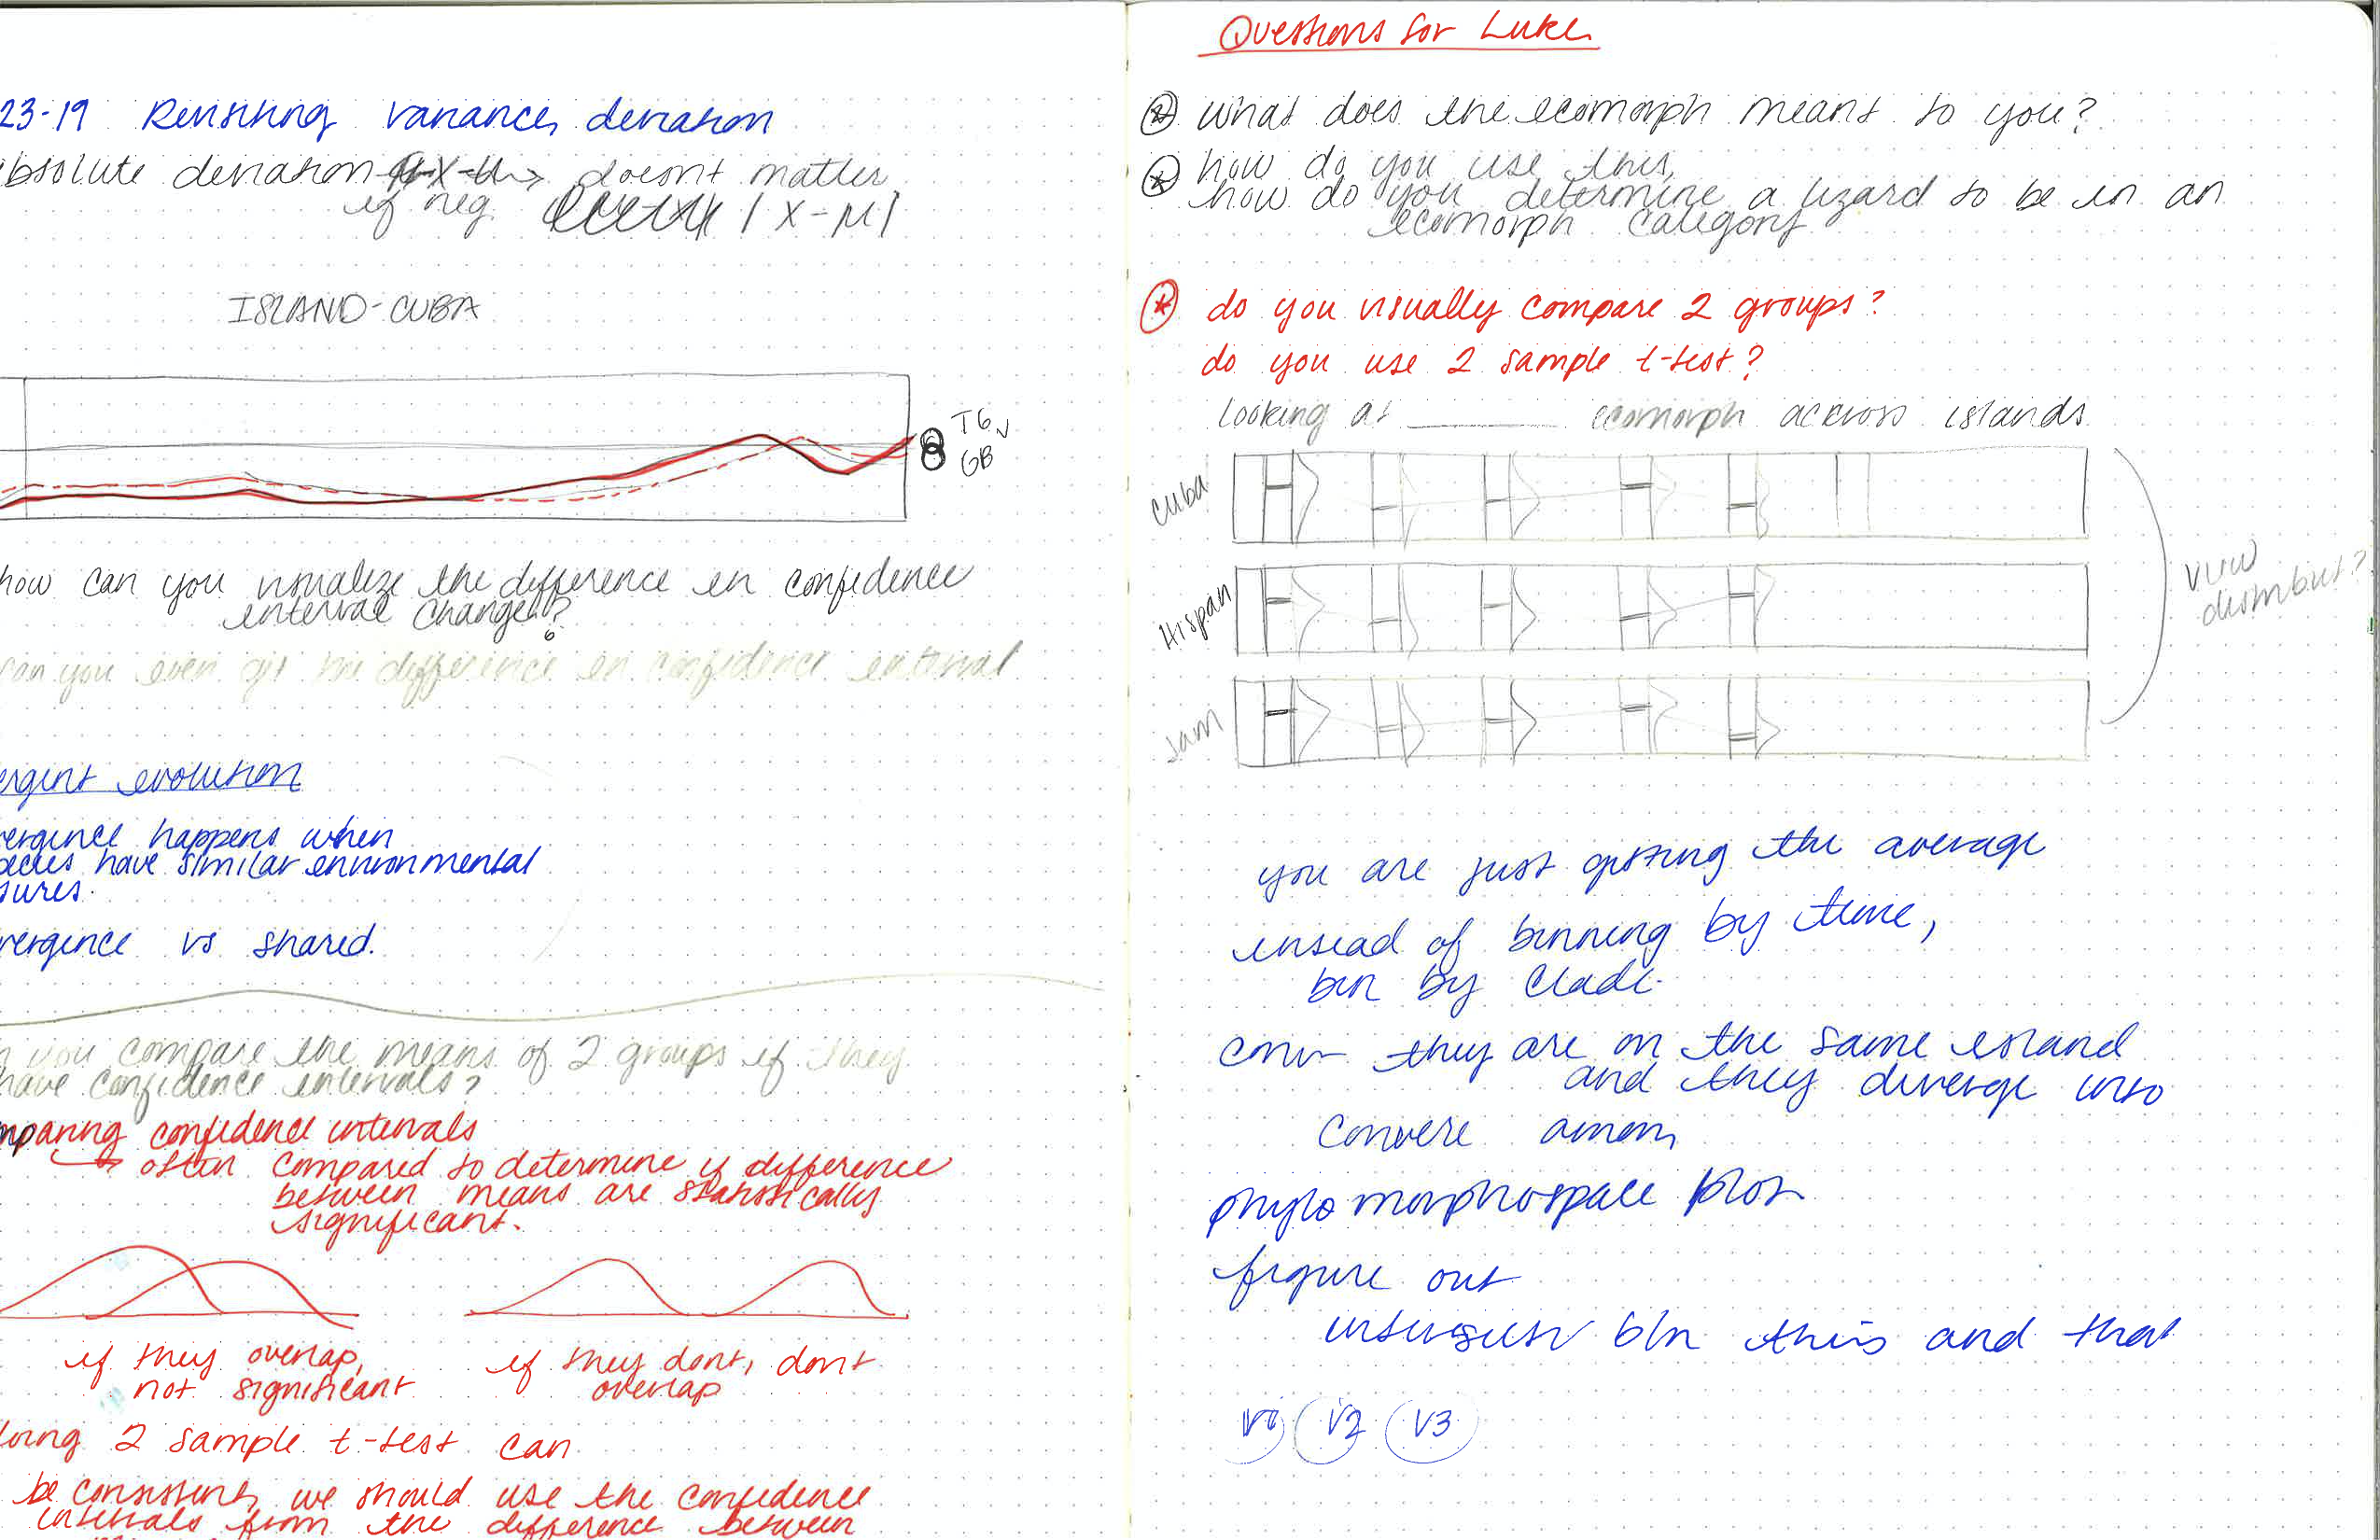 23-19 Revisiting variance, deviation
bsolute deviation → doesnt matter
if neg. |x-μ|
ISLAND-CUBA
TG
GB
how can you visualize the difference in confidence
interval change?
can you even get the difference in confidence interval
ergent evolution
ergence happens when
pecies have similar environmental
sures.
vergence vs shared.
you compare the means of 2 groups if they
have confidence intervals?
mparing confidence intervals
→ often compared to determine if difference
between means are statistically
significant.
if they overlap,
not significant
if they dont, dont
overlap
oing 2 sample t-test can
be consistent, we should use the confidence
intervals from the difference between
Questions for Luke
what does the ecomorph meant to you?
how do you use this,
how do you determine a lizard to be in an
ecomorph category
do you visually compare 2 groups?
do you use 2 sample t-test?
looking at ______ ecomorph across islands
Cuba
Hispan
Jam
view
distribut?
you are just getting the average
instead of binning by time,
bin by clade.
conv they are on the same island
and they diverge into
phylo morphospace plot
figure out
b/n this and that
V1 V2 V3